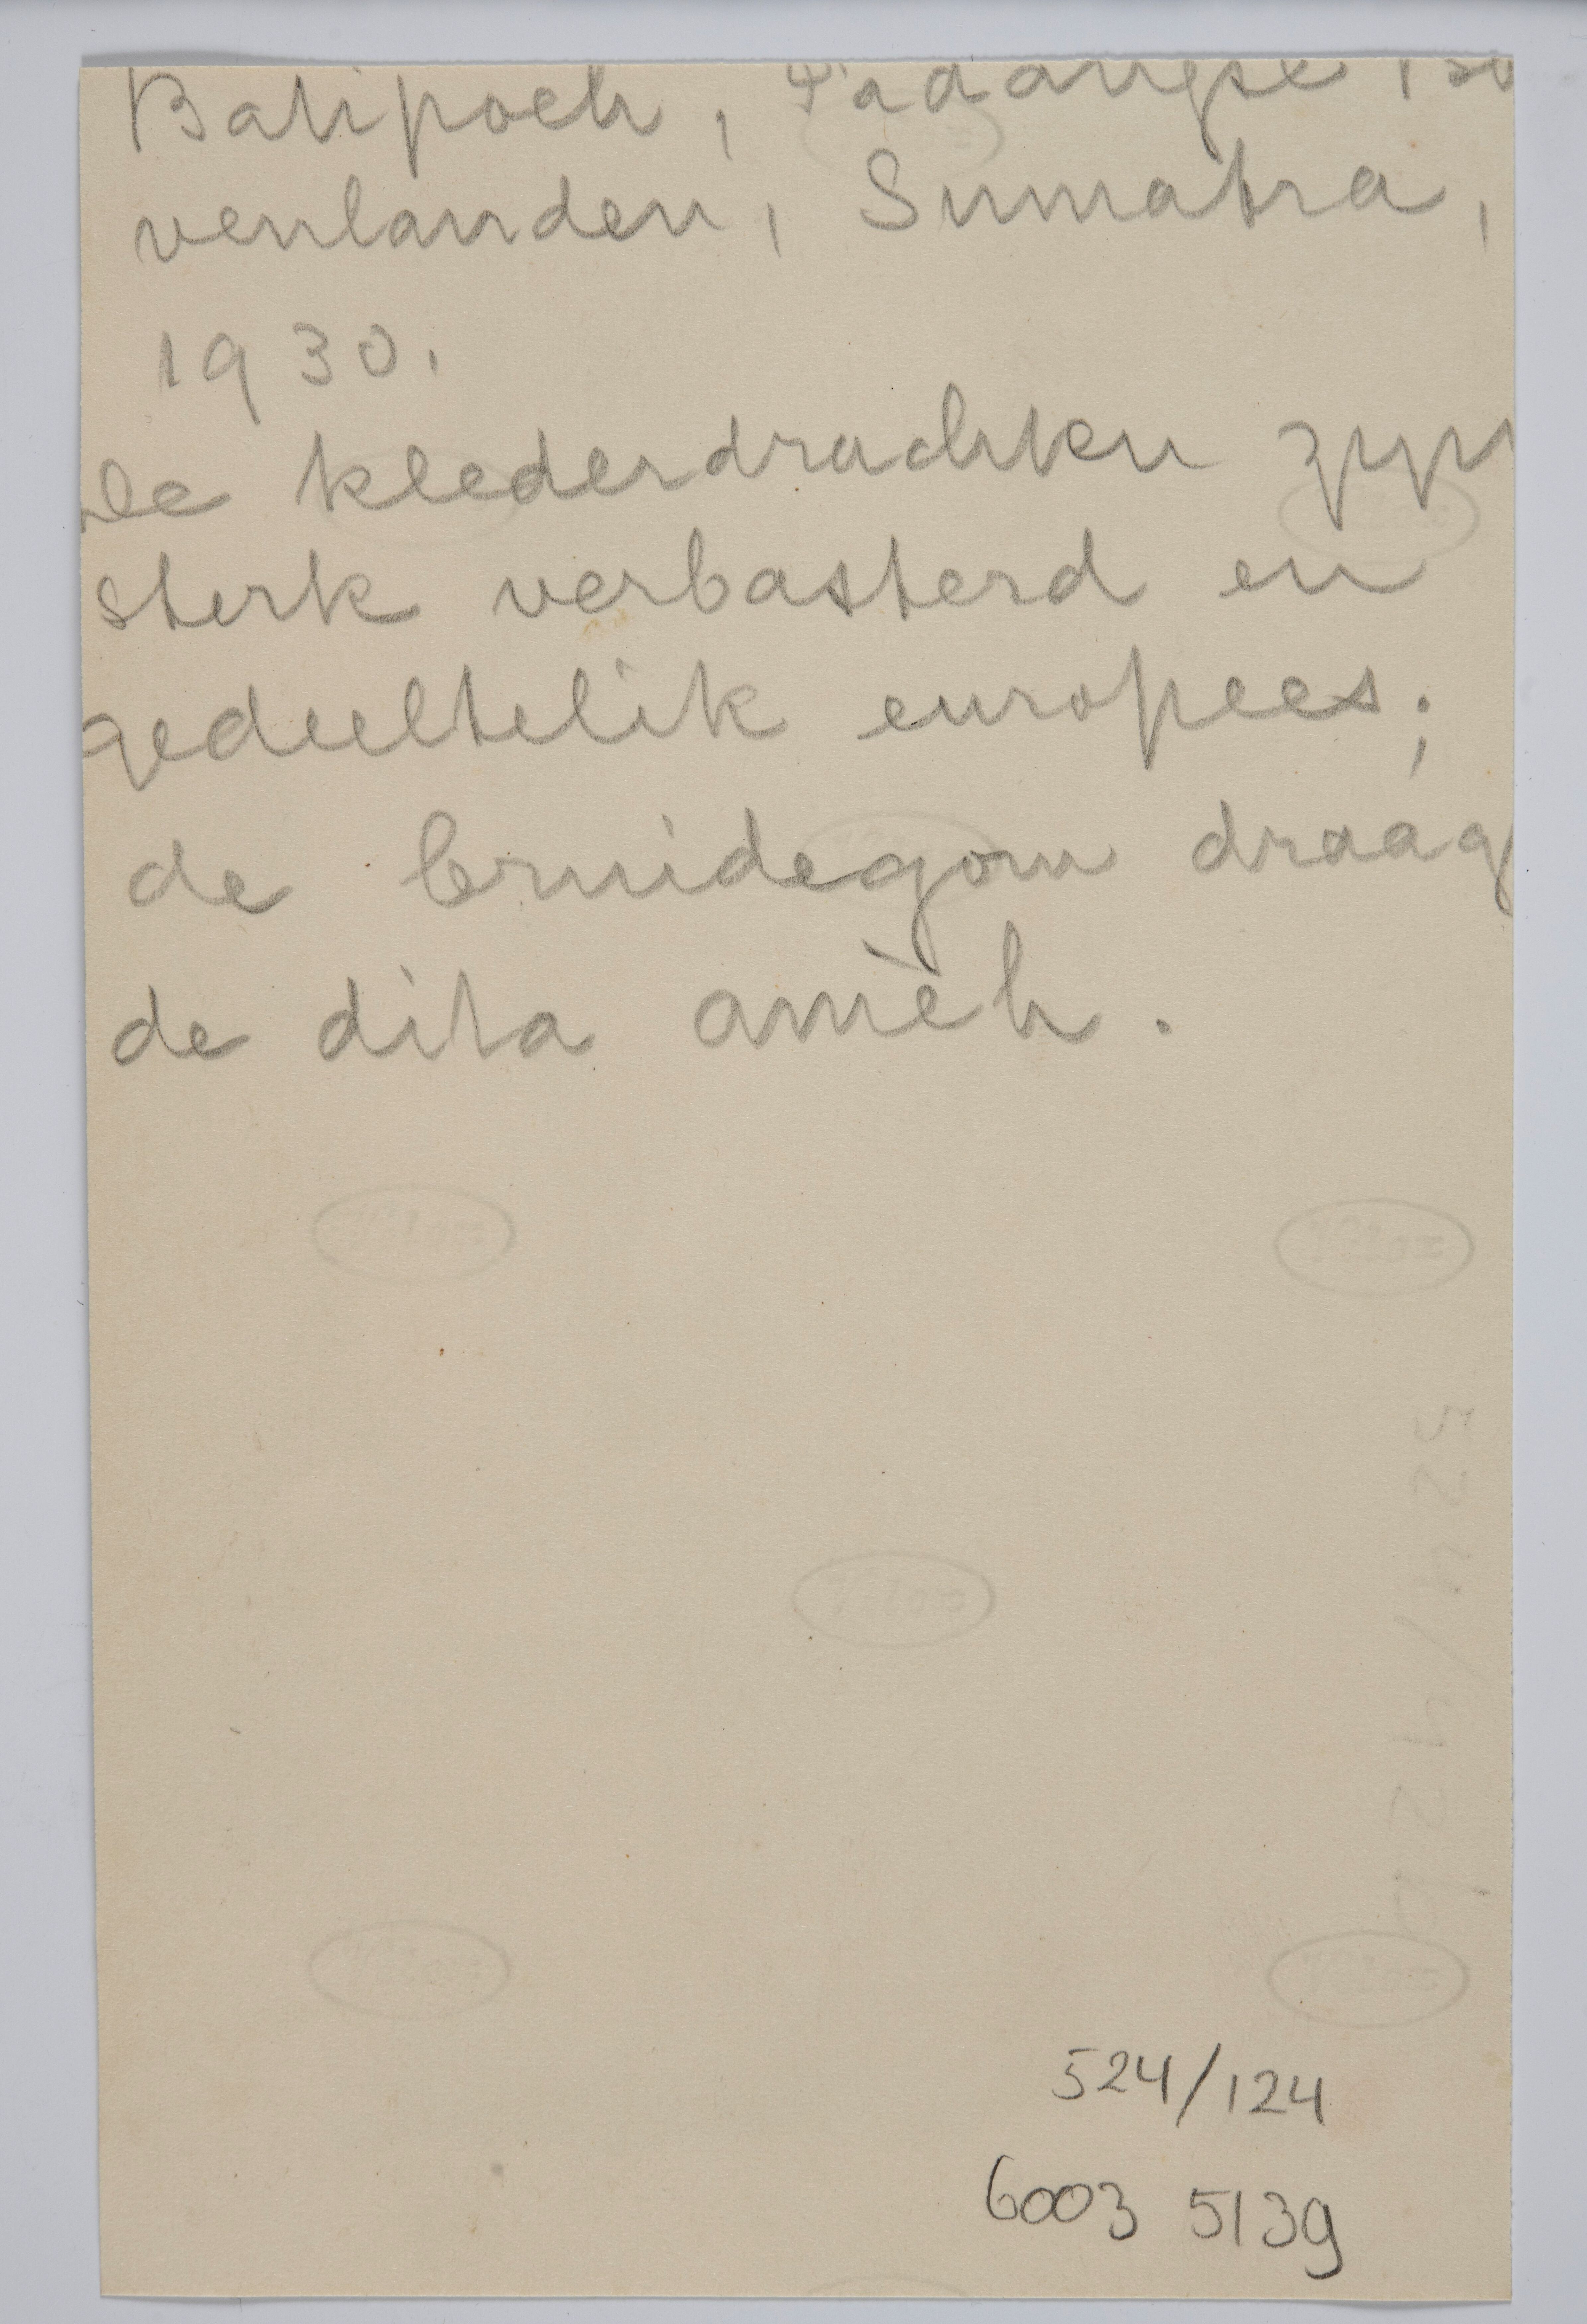 Batipoeh, Padangse Bo
venlanden, Sumatra,
1930.
De klederdrachten zijn
sterk verbasterd en
gedeeltelik europees;
de bruidegom draag
de dita amèh.
524/124
6003 5139